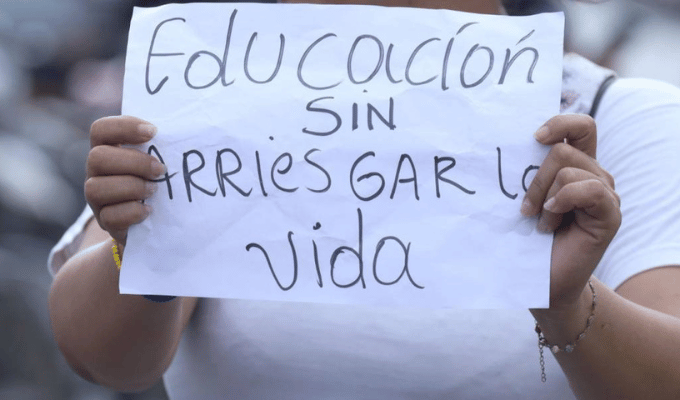 Educación
SIN
ARRIESGAR la
vida